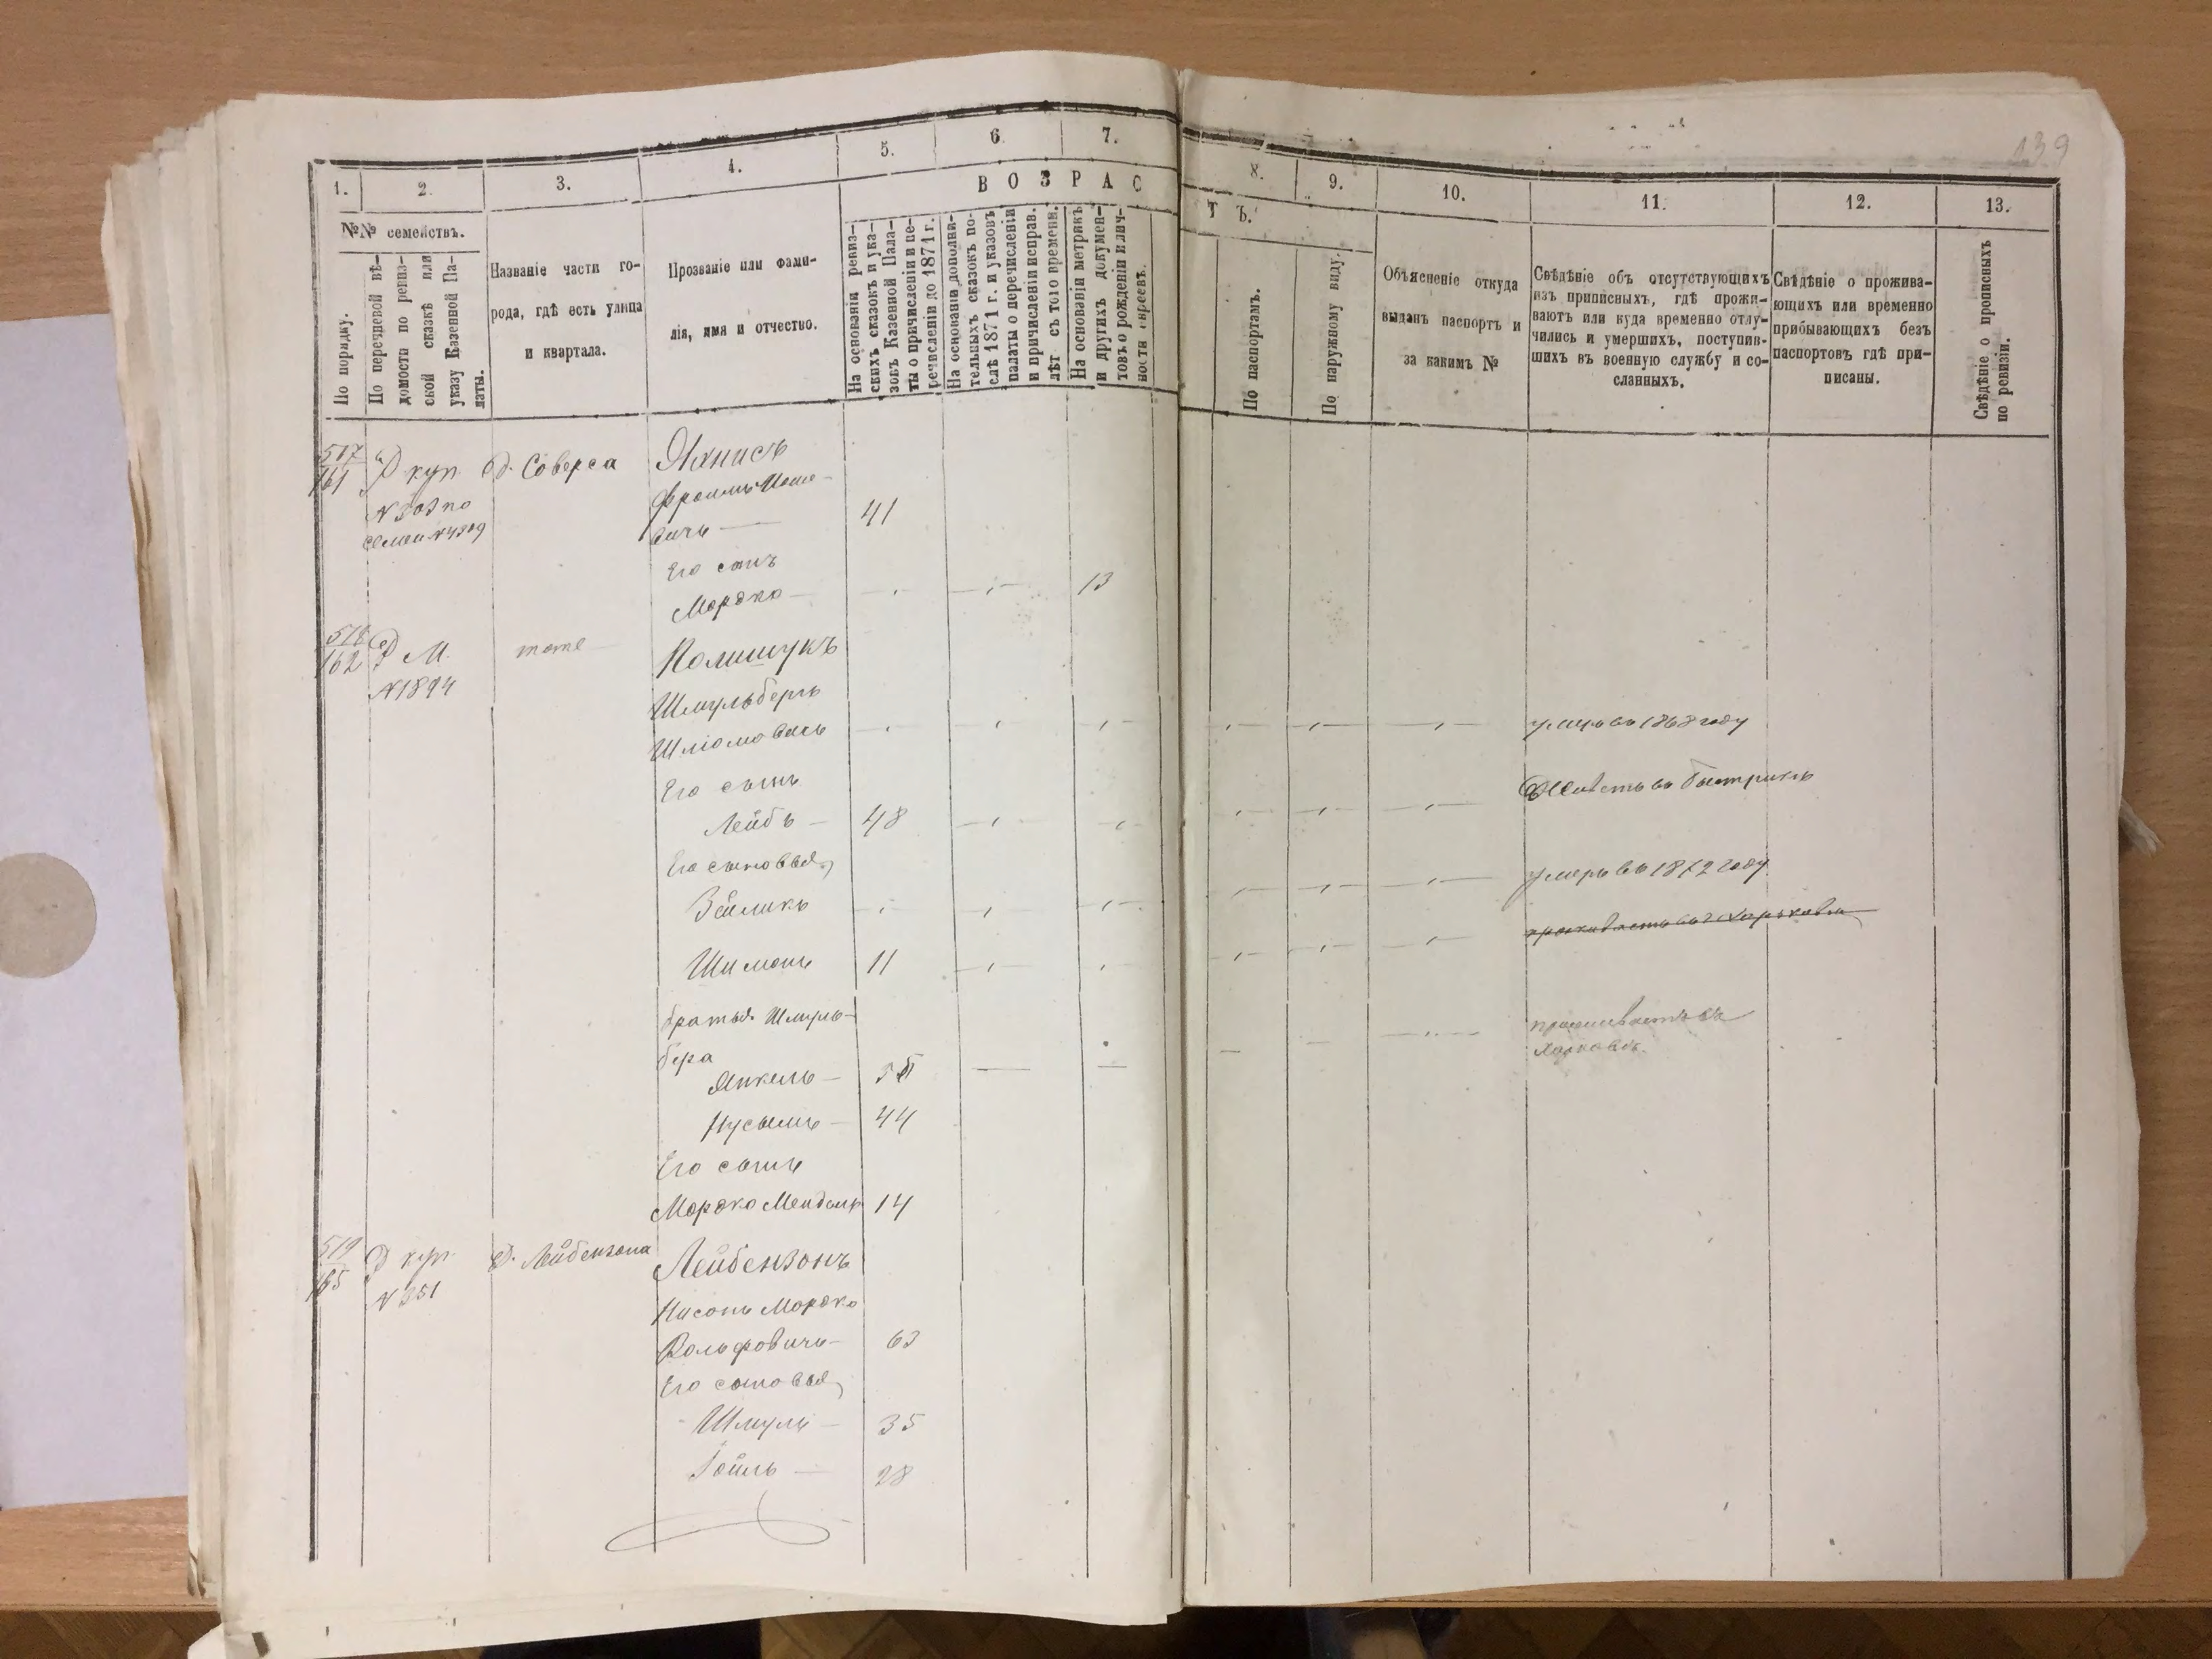 139
1.
2.
3.
4.
5.
6.
7.
8.
9.
10.
11.
12.
13.
ВОЗРАС
ТЪ.
№№ семействъ.
По порядку.
По перечневой вѣ-
домости по ревиз-
ской сказкѣ или
указу Казенной Па-
латы.
Названіе части го-
рода, гдѣ есть улица
и квартала.
Прозваніе или фами-
лія, имя и отчество.
На основаніи ревиз-
скихъ сказокъ и ука-
зовъ Казенной Пала-
ты о причисленіи и пе-
речисленіи до 1871 г.
На основаніи дополни-
тельныхъ сказокъ по-
слѣ 1871 г. и указовъ
палаты о перечисленіи
и причисленіи исправ.
лѣтъ съ того времени.
На основаніи метрикъ
и другихъ докумен-
товъ о рожденіи и лич-
ности евреевъ.
По паспортамъ.
По наружному виду.
Объясненіе откуда
выданъ паспортъ и
за какимъ №
Свѣдѣніе объ отсутствующихъ
изъ приписныхъ, гдѣ прожи-
ваютъ или куда временно отлу-
чились и умершихъ, поступив-
шихъ въ военную службу и со-
сланныхъ.
Свѣдѣніе о прожива-
ющихъ или временно
прибывающихъ безъ
паспортовъ гдѣ при-
писаны.
Свѣдѣніе о прописныхъ
по ревизіи.
517
161
куп
№ 303 по
д. Соверса
вичъ —
41
Его сынъ
Мордко —
13
518
162
М.
№ 1894
тоже
Полищукъ
Шмульберъ
Шліомовичъ
умеръ въ 1868 году
Его сынъ
Лейбъ —
48
Живетъ въ Быстрикѣ
Его сыновья
Зейликъ
умеръ въ 1872 году
Шимонъ
11
проживаетъ въ г. Харьковѣ
братья Шмуль-
бера
Янкель —
проживаетъ въ
Харьковѣ
Нусымъ —
44
Его сынъ
Мордко Мендель
14
519
165
куп
№ 351
д. Лейбензона
Лейбензонъ
Нисонъ Мордко
Вольфовичъ —
63
Его сыновья
Шмуль —
35
Гойль —
28